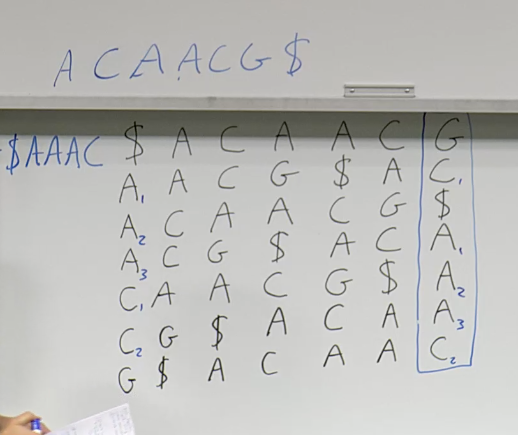 ACAACG$
$AAAC $ A C A A C G
A₁ A C G $ A C₁
A₂ C A A C G $
A₃ C G $ A C A₁
C₁ A A C G $ A₂
C₂ G $ A C A A₃
G $ A C A A C₂